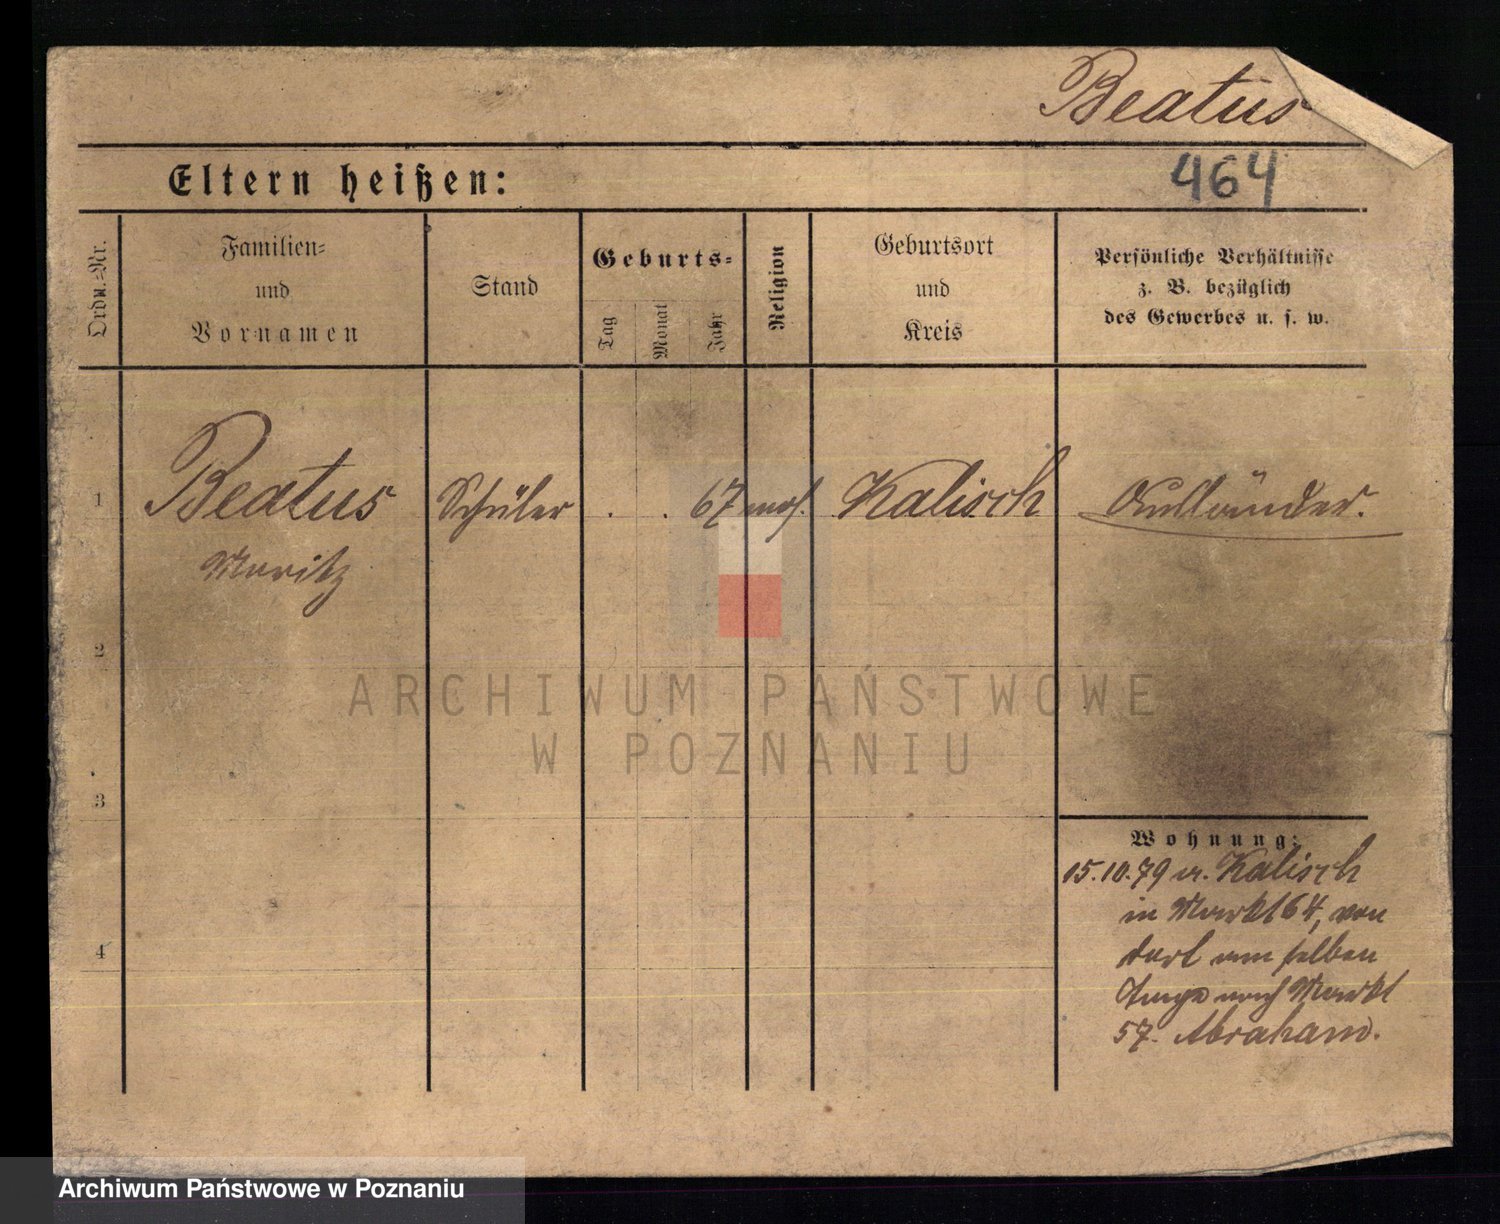 Beatus
464
Eltern heißen:
Ordn.-Nr.
Familien-
und
Vornamen
Stand
Geburts-
Tag
Monat
Jahr
Religion
Geburtsort
und
Kreis
Persönliche Verhältnisse
z. B. bezüglich
des Gewerbes u. s. w.
1 Beatus Schüler . . 67 mos. Kalisch Ausländer.
Moritz
2
3
4
Wohnung:
15.10.79 v. Kalisch
in Markt 64, von
dort am selben
Tage nach Markt
57. Abraham.
ARCHIWUM PAŃSTWOWE
W POZNANIU
Archiwum Państwowe w Poznaniu